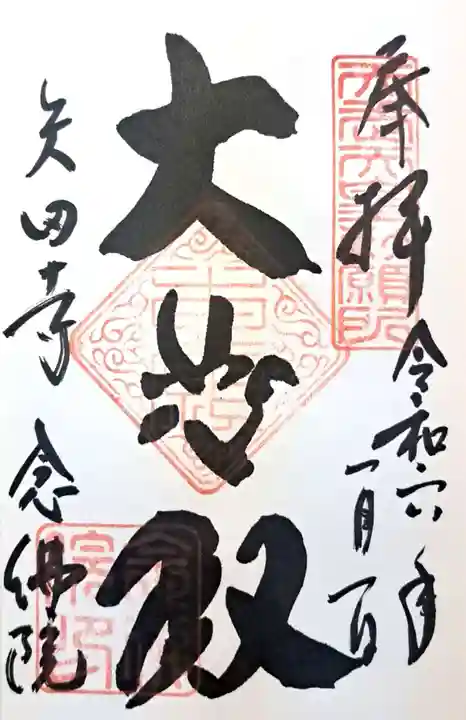 奉拝 令和六年
一月一日
大悲殿
矢田寺 念佛院